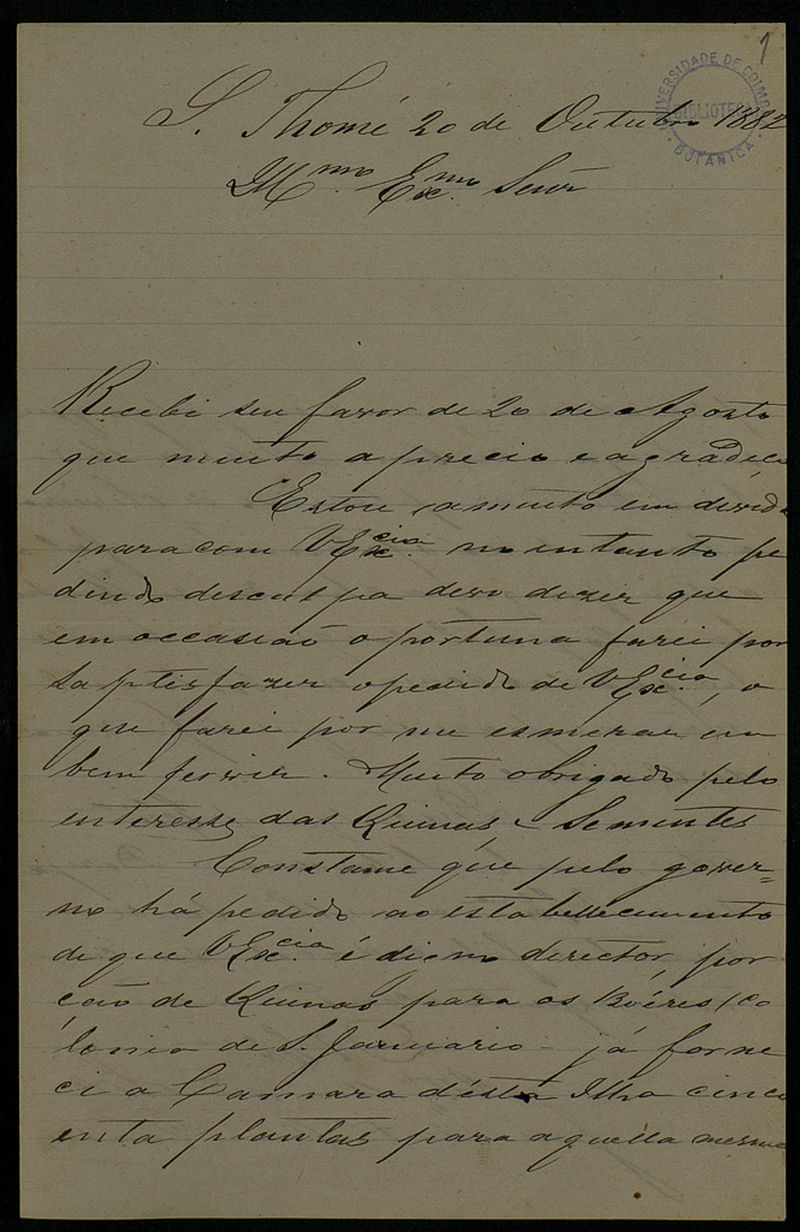 1
UNIVERSIDADE DE COIMBRA
BIBLIOTECA
BOTANICA
S. Thomé 20 de Outubro 1882
Illmo. Exmo. Senr
Recebi seu favor de 20 de Agosto
que muito aprecio e agradeço
Estou a muito em divida
para com VExcia. no entento pe
dindo desculpa devo dizer que
em occasiaõ oportuna farei por
saptisfazer o pedido de VExcia., o
que farei por me esmerar em
bem servir. Muito obrigado pelo
interesse das Quinas Sementes
Constame que pelo gover=
no há pedido ao estabellecimento
de que VExcia. é digno director, por
çaõ de Quinas para os Boéres (co
lonia de S. Januario - já forne
ci a Camara désta Ilha cinco
enta plantas para aquella mesma